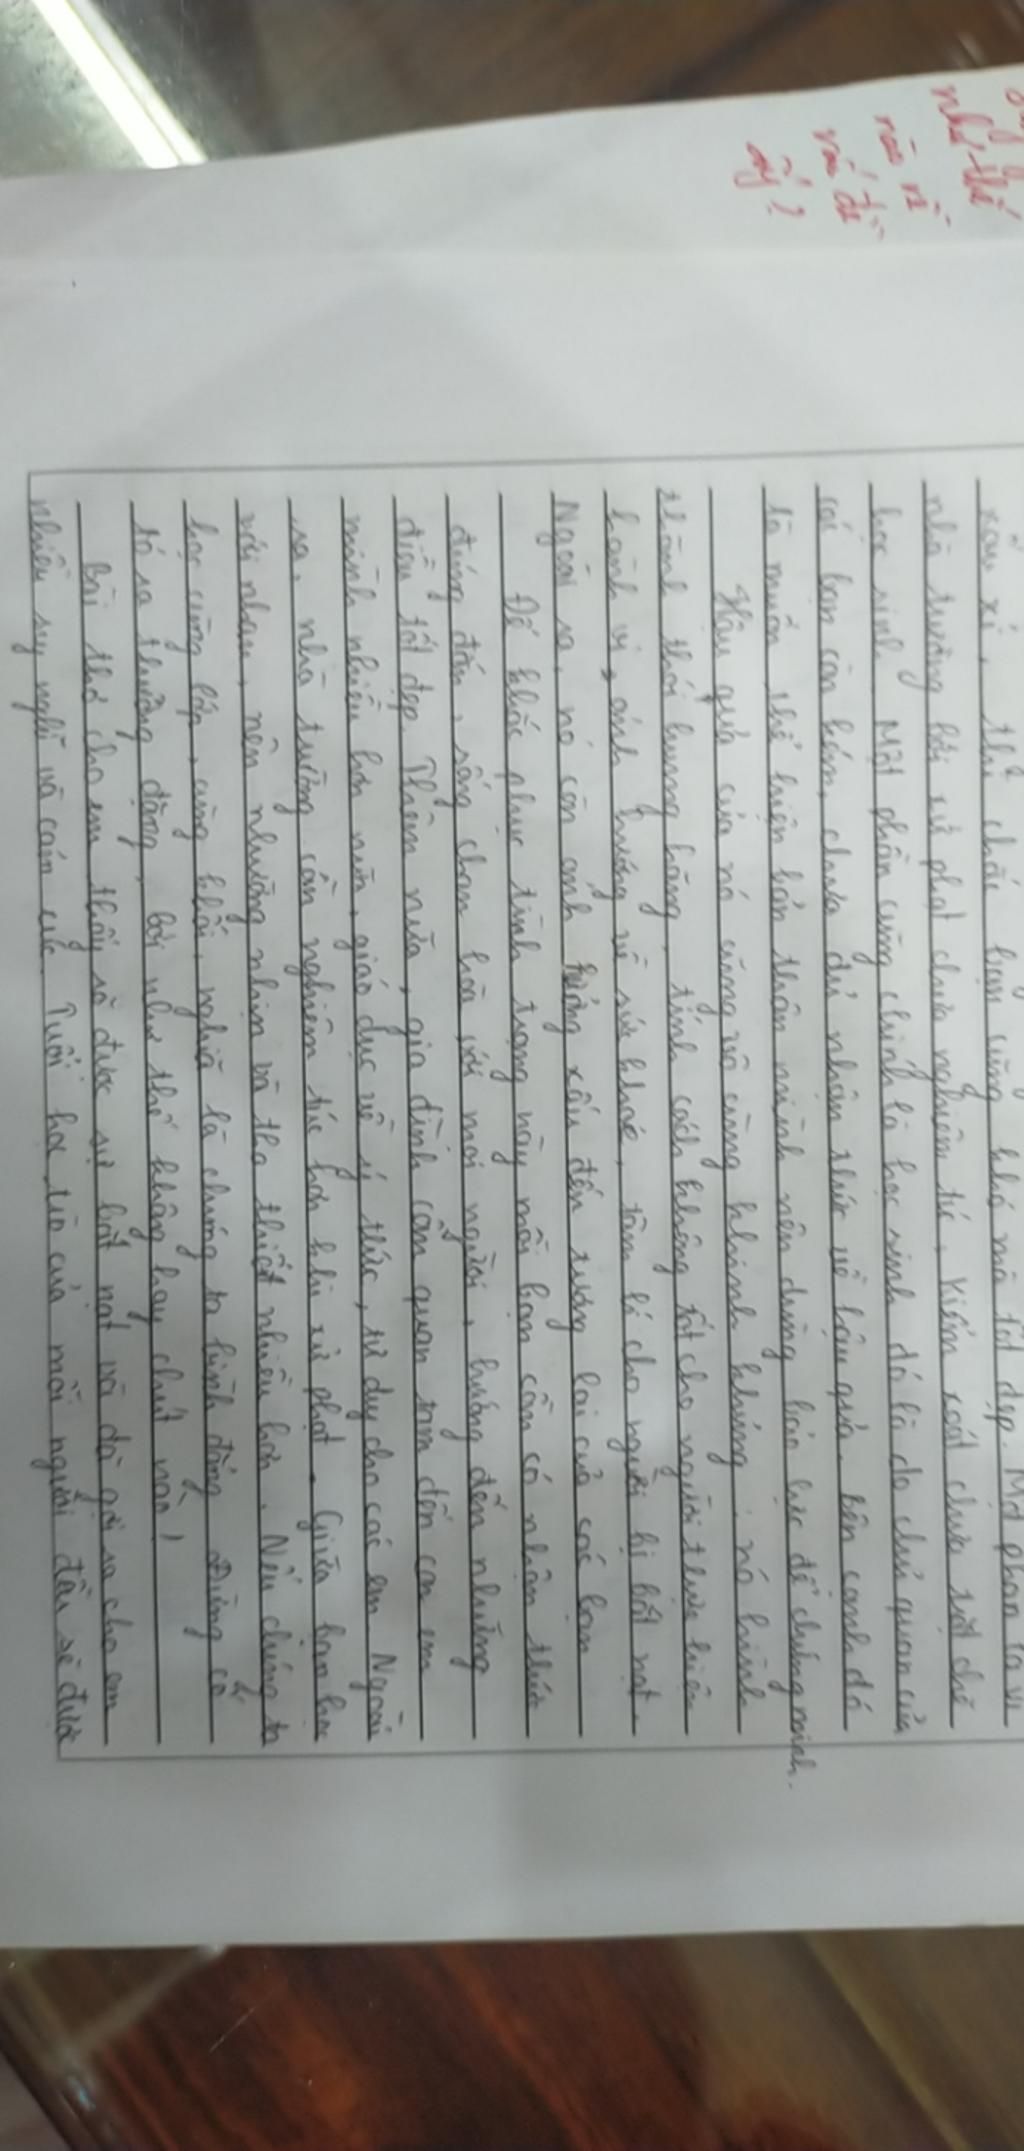 như thế
nào về
vấn đề
ấy?
xấu xí, thì chắc hẳn cũng khó mà tốt đẹp. Một phần là vì
nhà trường bởi xử phạt chưa nghiêm túc, kiểm soát chưa chặt chẽ
học sinh. Một phần cũng chính là học sinh đó là do chủ quan của
các bạn còn kém, chưa đủ nhận thức về hậu quả. Bên cạnh đó
là muốn thể hiện bản thân mình nên dùng bạo lực để chứng minh.
Hậu quả của nó cũng vô cùng khủng khiếp: nó hình
thành thói hung hăng, tính cách không tốt cho người thực hiện
hành vi, ảnh hưởng về sức khoẻ, tâm lí cho người bị bắt nạt.
Ngoài ra, nó còn ảnh hưởng xấu đến tương lai của các bạn
Để khắc phục tình trạng này mỗi bạn cần có nhận thức
đúng đắn, sống chan hòa với mọi người, hướng đến những
điều tốt đẹp. Thêm nữa, gia đình cần quan tâm đến con em
mình nhiều hơn nữa, giáo dục về ý thức, tư duy cho các em. Ngoài
ra, nhà trường cần nghiêm túc hơn khi xử phạt. Giữa bạn học
với nhau, nên nhường nhịn và tha thiết nhiều hơn. Nếu chúng ta
học cùng lớp, cùng khối, nghĩa là chúng ta bình đẳng. Đừng cố
tỏ ra thượng đẳng, bởi như thế không hay chút nào!
Bài thơ cho em thấy rõ được sự bắt nạt và đã gợi ra cho em
nhiều suy nghĩ và cảm xúc. Tuổi học trò của mỗi người đều sẽ được